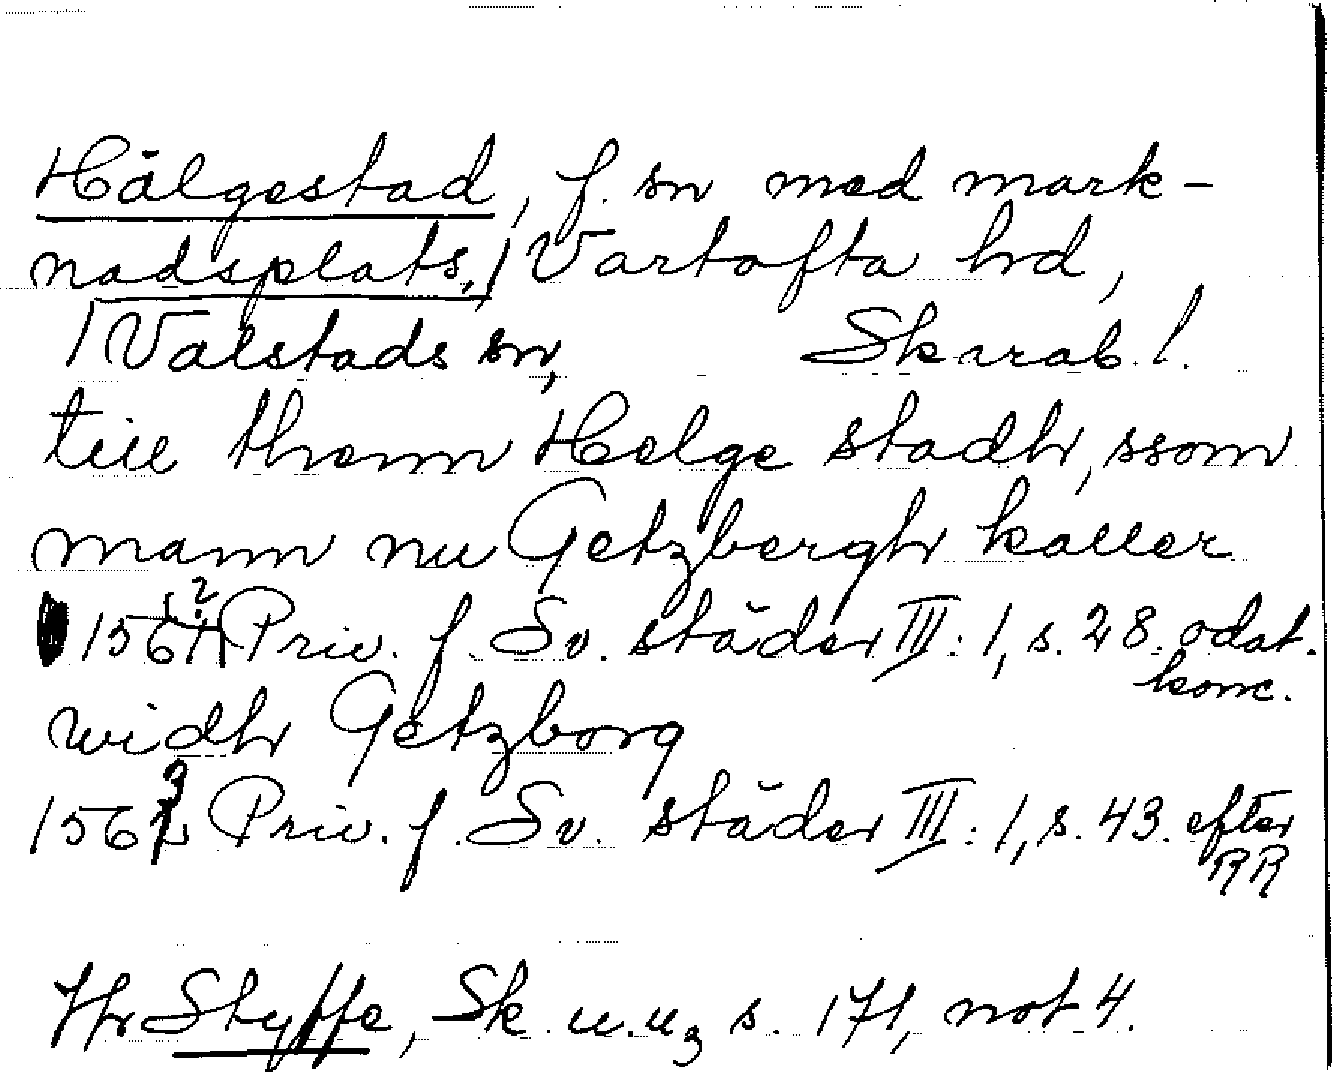 Hälgestad, f. sn med mark-
nadsplats, Vartofta hd,
Valstads sn, Skarab. l.
till thenn Helge stadh, ssom
mann nu Getzbergh kaller
1562 Priv. f. Sv. städer III: 1, s. 28. odat.
konc.
widh Getzborg
1563 Priv. f. Sv. städer III: 1, s. 43. efter
RR
Jfr Styffe, Sk. u.u3 s. 171, not 4.